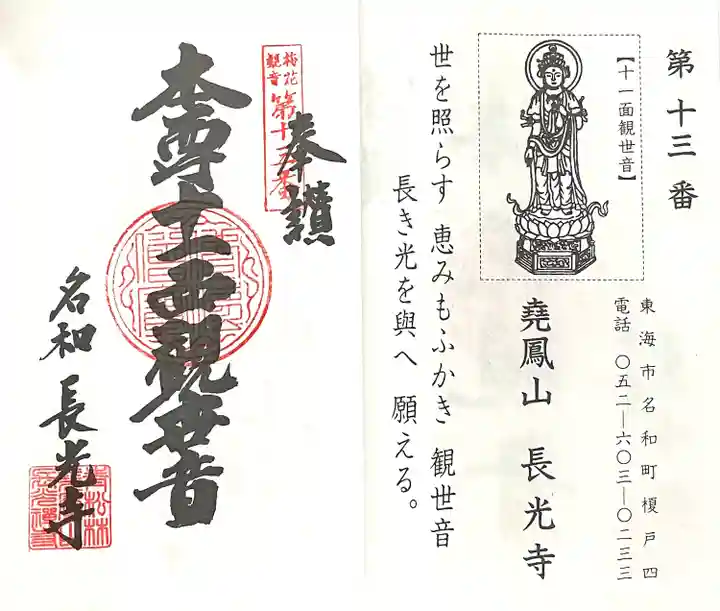 第十三番
【十一面観世音】
東海市名和町榎戸四
電話 〇五二―六〇三―〇二三三
堯鳳山 長光寺
世を照らす 恵みもふかき 観世音
長き光を與へ 願える。
奉讃
梅花
観音
第十三番
本尊十一面観世音
名和 長光寺